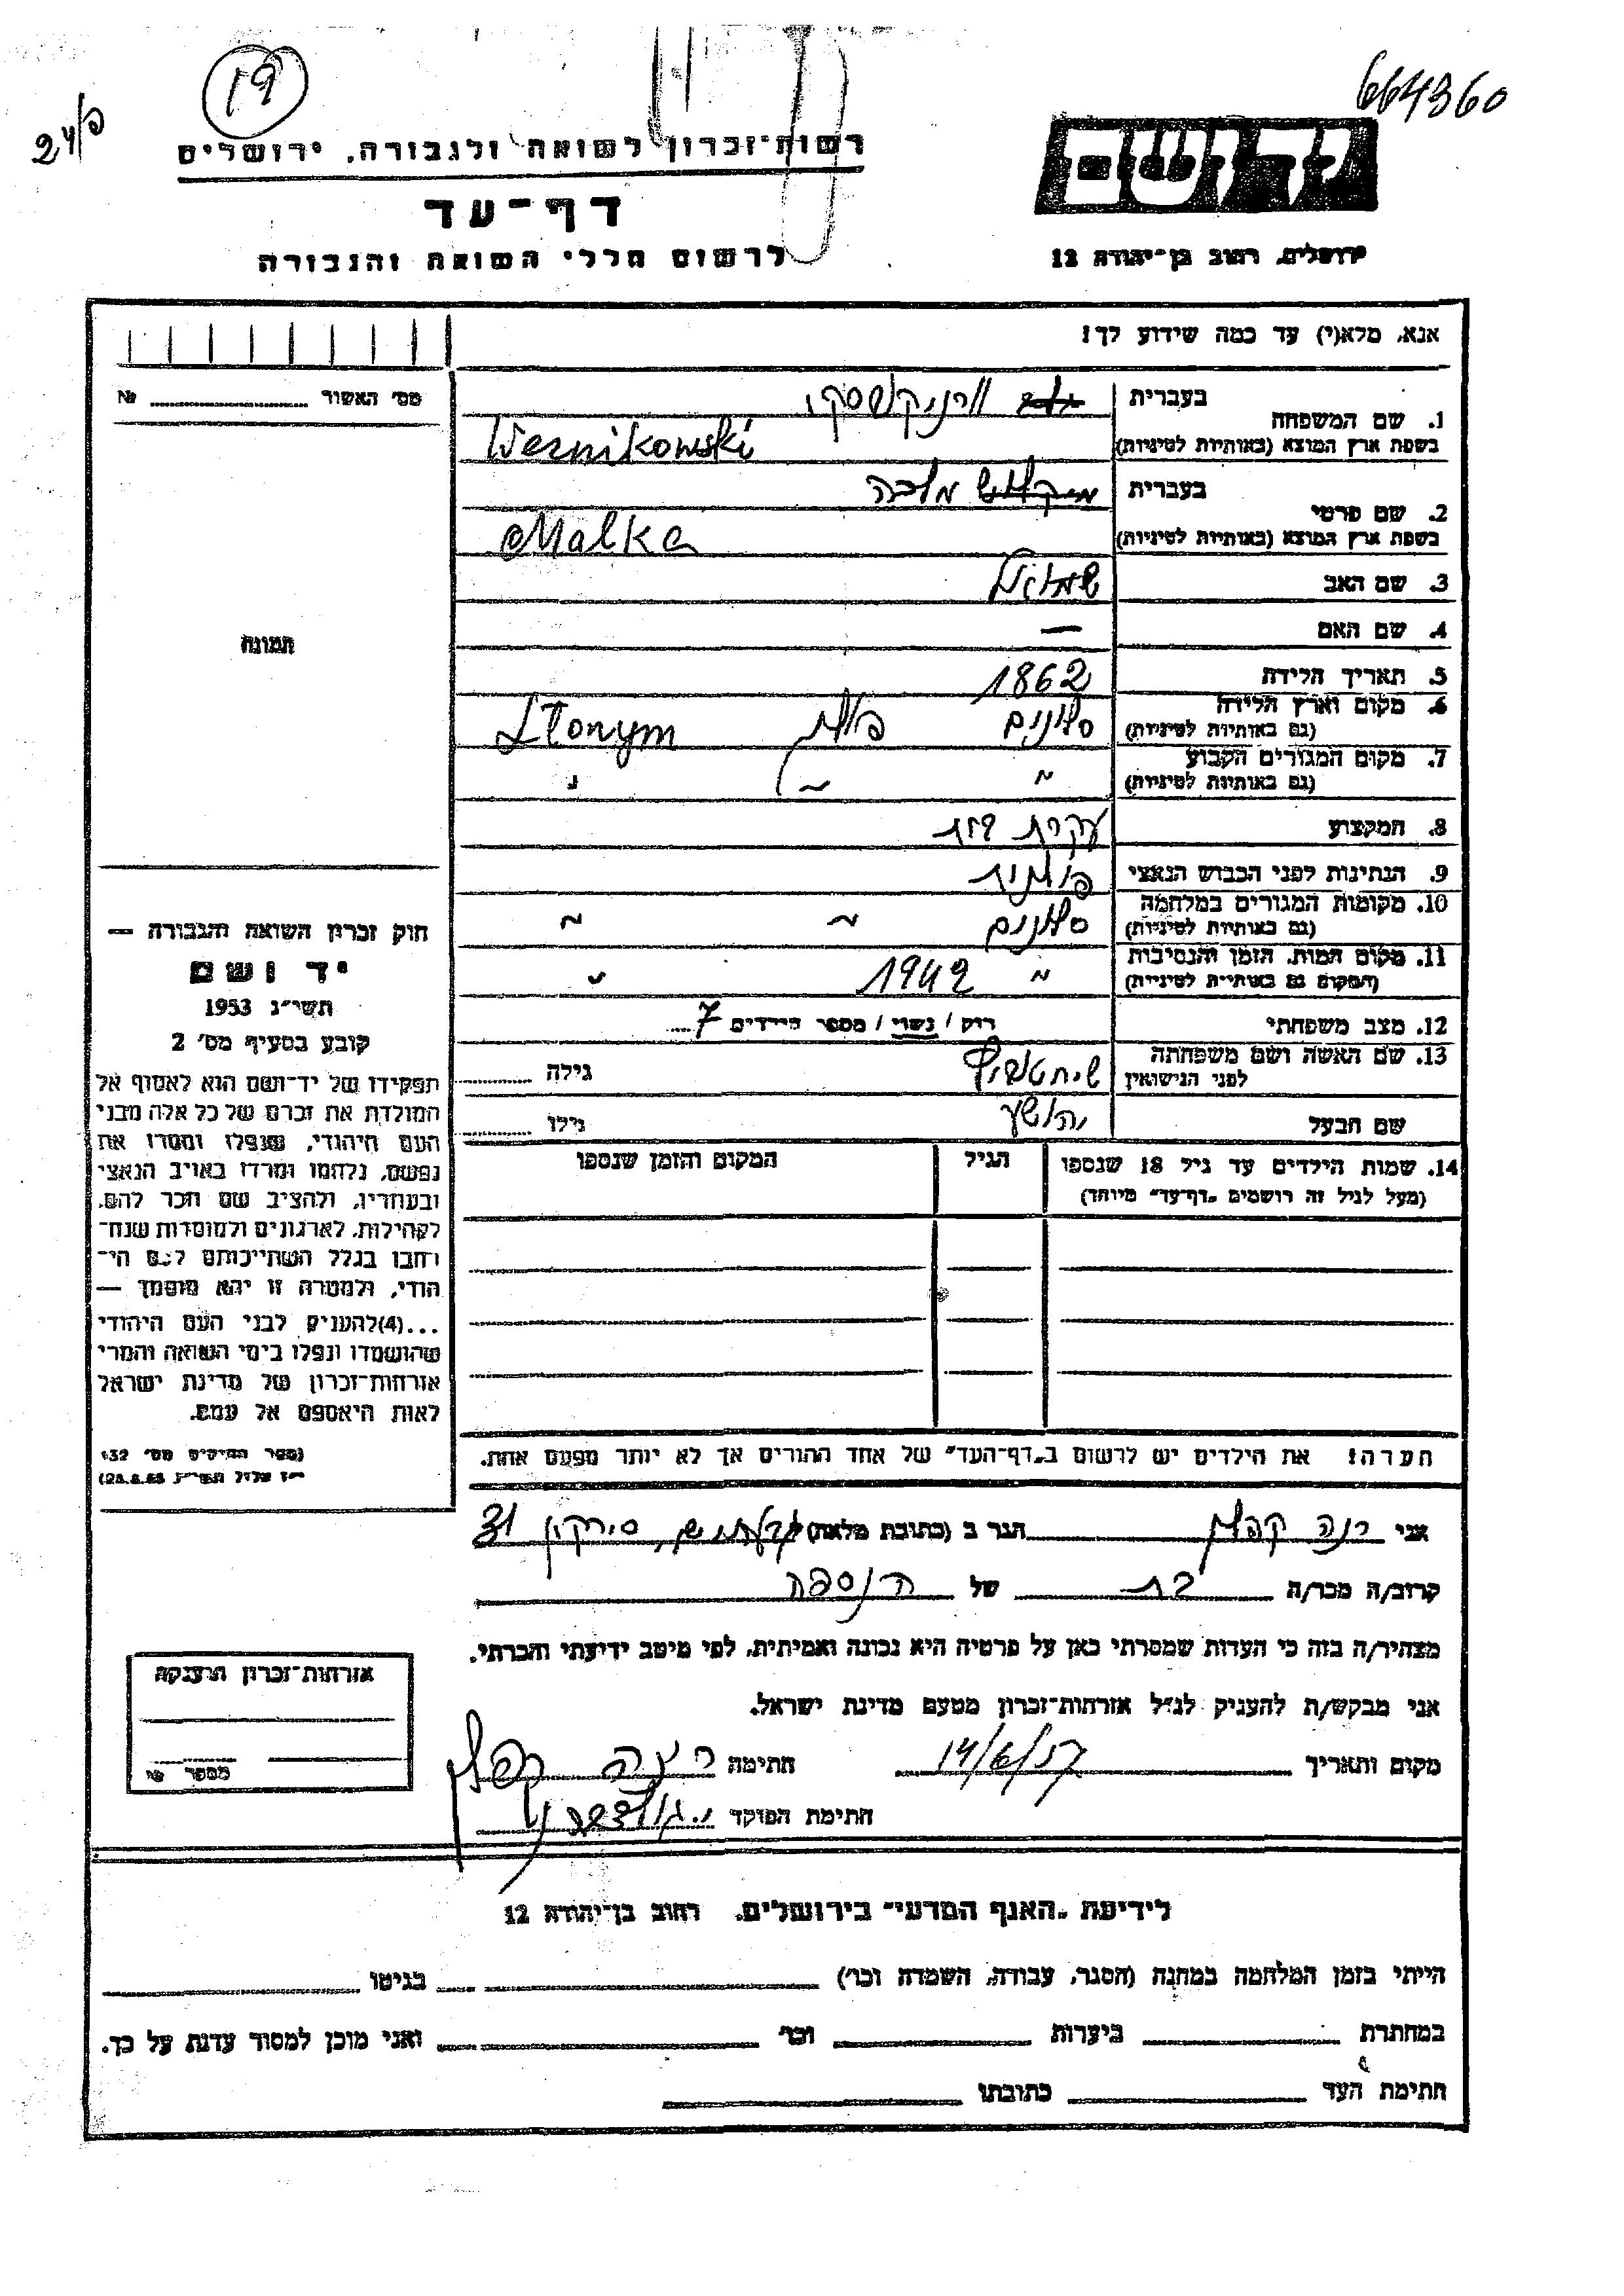 664360
19
רשות־זכרון לשואה ולגבורה, ירושלים
דף־עד
לרשום חללי השואה והגבורה
ירושלים, רחוב בן־יהודה 12
אנא, מלא(י) עד כמה שידוע לך!
מס׳ האשור № 
1. שם המשפחה
בעברית
בשפת ארץ המוצא (באותיות לטיניות)
Wernikowski
2. שם פרטי
בעברית מלכה
בשפת ארץ המוצא (באותיות לטיניות)
Malka
3. שם האב שמואל
4. שם האם —
5. תאריך הלידה 1862
6. מקום וארץ הלידה
(גם באותיות לטיניות) סלונים פולין Słonym
7. מקום המגורים הקבוע
(גם באותיות לטיניות) ״ ״ ״
8. המקצוע עקרת בית
9. הנתינות לפני הכבוש הנאצי פולנית
10. מקומות המגורים במלחמה
(גם באותיות לטיניות) סלונים ״ ״
11. מקום המות, הזמן והנסיבות
(המקום גם באותיות לטיניות) ״ 1942 ״
12. מצב משפחתי רוק / נשוי / מספר הילדים 7
13. שם האשה ושם משפחתה
לפני הנישואין גילה
שם הבעל יהושע גילו
14. שמות הילדים עד גיל 18 שנספו הגיל המקום והזמן שנספו
(מעל לגיל זה רושמים „דף־עד״ מיוחד)
הערה! את הילדים יש לרשום ב„דף־העד״ של אחד ההורים אך לא יותר מפעם אחת.
תמונה
חוק זכרון השואה והגבורה —
יד ושם
תשי״ג 1953
קובע בסעיף מס׳ 2
תפקידו של יד־ושם הוא לאסוף אל
המולדת את זכרם של כל אלה מבני
העם היהודי, שנפלו ומסרו את
נפשם, נלחמו ומרדו באויב הנאצי
ובעוזריו, ולהציב שם וזכר להם,
לקהילות, לארגונים ולמוסדות שנח־
רבו בגלל השתייכותם לעם הי־
הודי, ולמטרה זו יהא מוסמך —
...(4) להעניק לבני העם היהודי
שהושמדו ונפלו בימי השואה והמרי
אזרחות־זכרון של מדינת ישראל
לאות היאספם אל עמם.
(ספר החוקים מס׳ 132
אני רנה קפלן הגר ב (כתובת מלאה) סירקין 31
קרוב/ה מכר/ה בת של הנספה
מצהיר/ה בזה כי העדות שמסרתי כאן על פרטיה היא נכונה ואמיתית, לפי מיטב ידיעתי והכרתי.
אני מבקש/ת להעניק לנ״ל אזרחות־זכרון מטעם מדינת ישראל.
מקום ותאריך 14/6/57 חתימה רנה קפלן
חתימת הפוקד
אזרחות־זכרון הוענקה
מספר
לידיעת „האגף המדעי״ בירושלים, רחוב בן־יהודה 12
הייתי בזמן המלחמה במחנה (הסגר, עבודה, השמדה וכו׳) בגיטו
במחתרת ביערות וכו׳ ואני מוכן למסור עדות על כך.
חתימת העד כתובתו